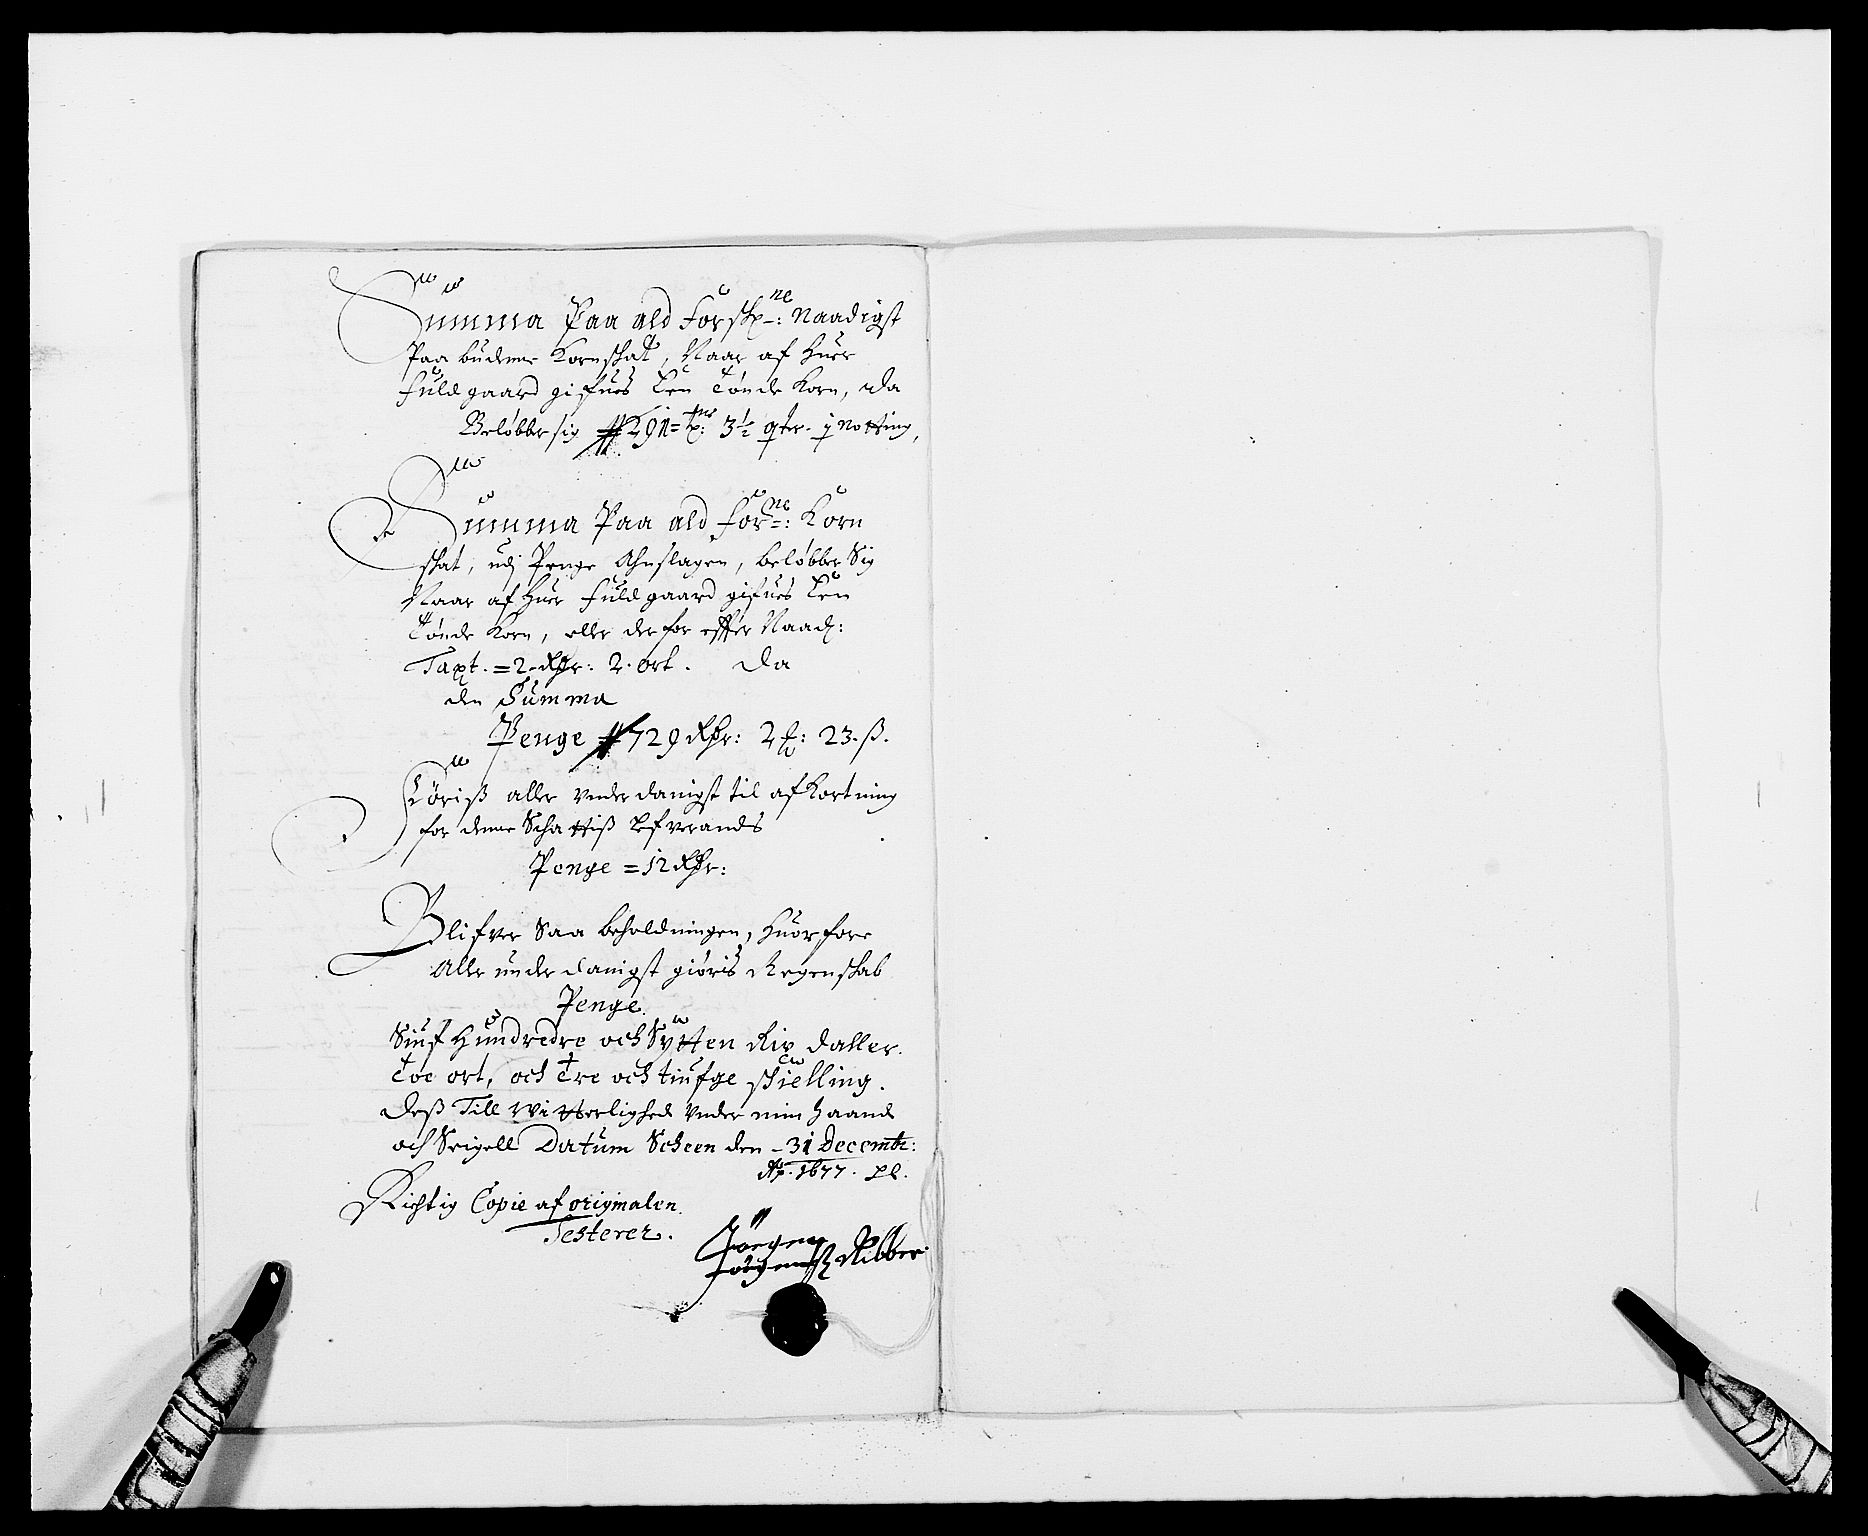 Summa Paa ald Forskr-ne: Naadigst
Paa budenne Kornskat, Naar af huer
fuld gaard gifues Een Tønde Korn, da
Beløbber sig 291= tr: 3½ qter. j notting,
Summa Paa ald for-ne: Korn
skat, udj Penge Ahnslagen, beløbber Sig
Naar af huer fuld gaard gifues Een
Tønde Korn, eller derfor effter Naad:
Taxt. =2-Rdr: 2. ort. da
den Summa
Penge 729 Rdr: 2 ß: 23. ß.
Føriß aller vnderdanigst til afKortning
for denne Schattiß
Penge =12 Rdr:
Blifver Saa beholdningen, huorfore
Aller underdanigst giøris Regenskab
Penge.
Siuf Hundredre och Sytten Rix daller.
Toe ort, och Tre och tiufge skielling.
Deß Till Witterlighed vnder min haand
och Seigell Datum Scheen den -31 Decembr:
Ao. 1677. pl.
Richtig Copie af originalen
Testerer.
Jørgen
Jørgenß Ribber